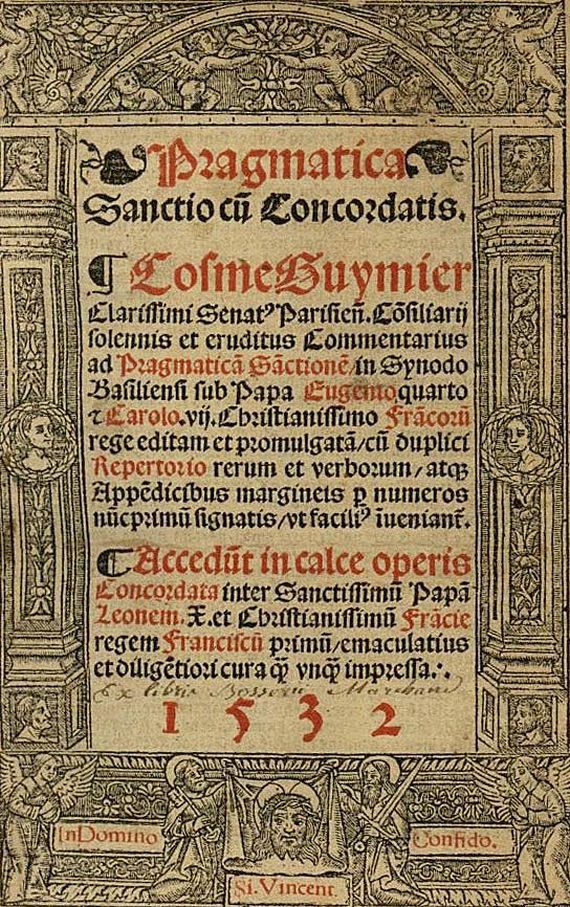 Pragmatica
Sanctio cũ Concordatis.
¶ Cosme Guymier
Clarissimi Senatꝰ Parisieñ. Cõsiliarij
solennis et eruditus Commentarius
ad Pragmaticã Sãctionẽ/in Synodo
Basiliensi sub Papa Eugenio quarto
⁊ Carolo.vij. Christianissimo Frãcorũ
rege editam et promulgatã/cũ duplici
Repertorio rerum et verborum/atqꝫ
Appẽdicibus margineis ꝑ numeros
nũc primũ signatis/vt faciliꝰ iueniant̃.
¶ Accedũt in calce operis
Concordata inter Sanctissimũ Papã
Leonem.X.et Christianissimũ Frãcie
regem Franciscũ primũ/emaculatius
et diligẽtiori cura q̃ȝ vnq̃ȝ impressa.·.
Ex libris
1532
In Domino
Confido.
Si. Vincent.